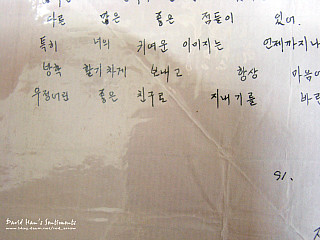 다른 많은 좋은 점들이 있어.
특히 너의 귀여운 이미지는 언제까지나
항상 마음에
우정어린 좋은 친구로 지내기를 바란
91.
David Han's Sentiments